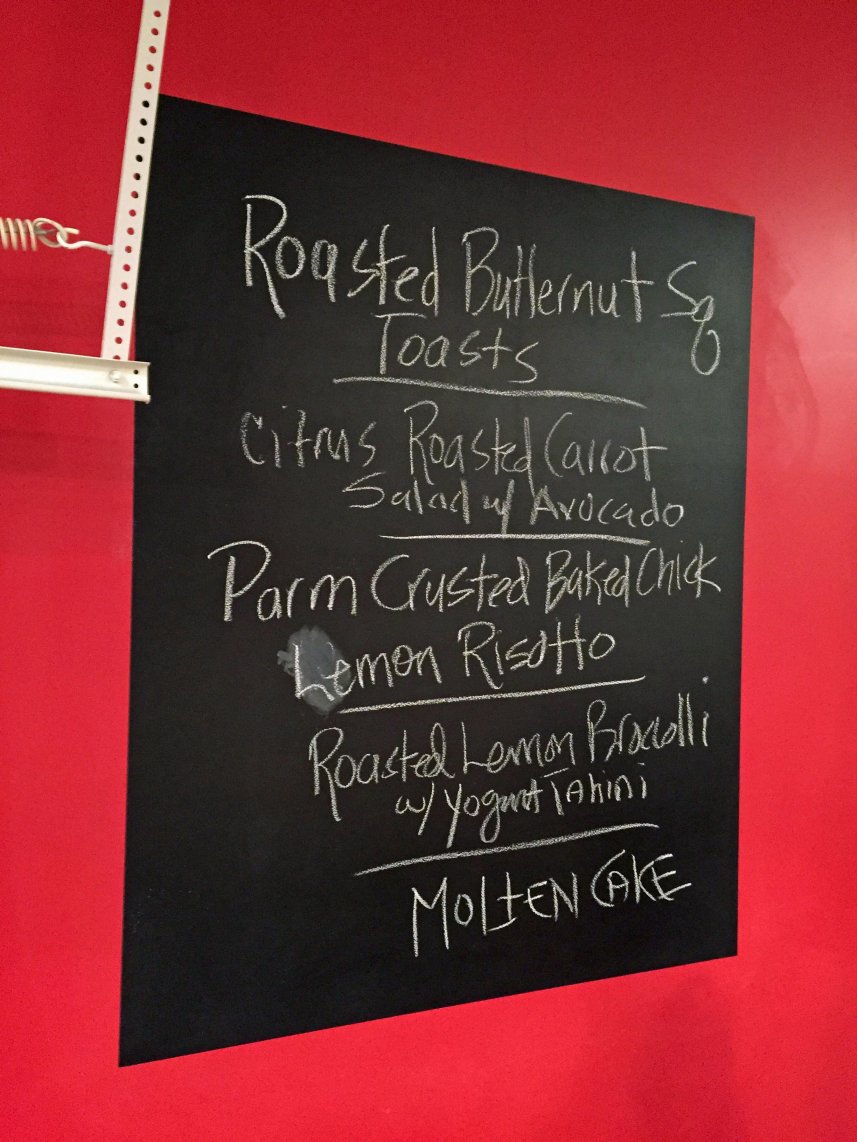 Roasted Butternut Sq
Toasts
Citrus Roasted Carrot
Salad w/ Avocado
Parm Crusted Baked Chick
Lemon Risotto
Roasted Lemon Broccolli
w/ Yogurt Tahini
MOLTEN CAKE